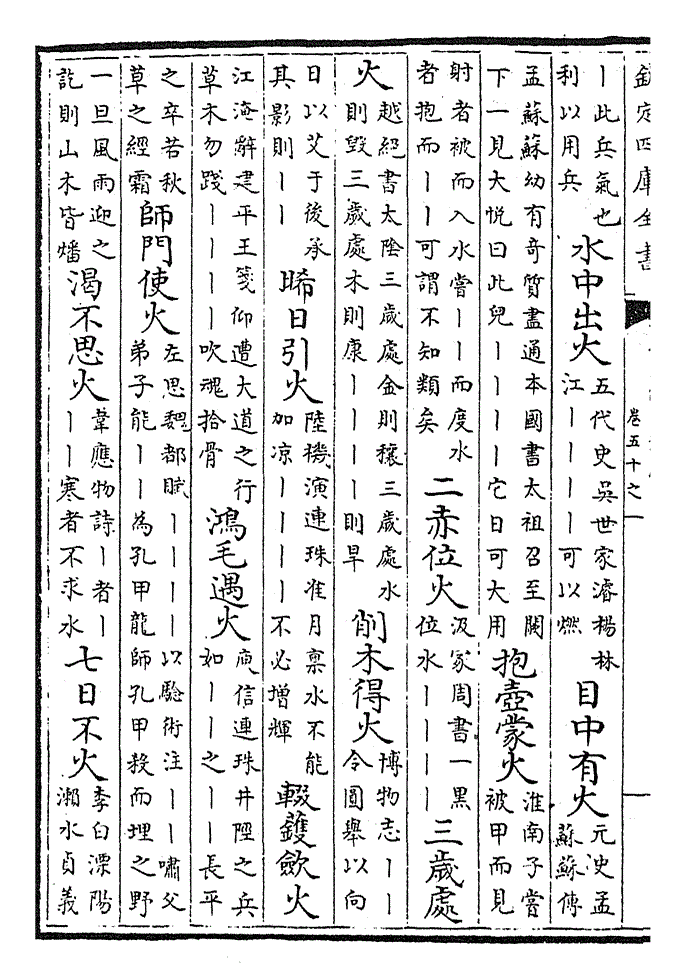 欽定四庫全書 卷五十之一
丨此兵氣也利以用兵水中出火五代史吳世家濬楊林江丨丨丨丨可以燃目中有火元史孟蘇蘇傳
孟蘇蘇幼有奇質盡通本國書太祖召至闕下一見大悅曰此兒丨丨丨丨它日可大用抱壺蒙火淮南子嘗被甲而見
射者被而入水嘗丨丨而度水者抱而丨丨可謂不知類矣二赤位火汲冡周書一黒位水丨丨丨丨三歲處
火越絕書太陰三歲處金則穰三歲處水則毀三歲處木則康丨丨丨丨則旱削木得火博物志丨丨令圓舉以向
日以艾于後承其影則丨丨晞日引火陸機演連珠准月禀水不能加凉丨丨丨丨不必增輝輟鑊歛火
江淹辭建平王箋仰遭大道之行草木勿踐丨丨丨丨吹魂拾骨鴻毛遇火庾信連珠井陘之兵如丨丨之丨丨長平
之卒若秋草之經霜師門使火左思魏都賦丨丨丨丨以驗術注丨丨嘯父弟子能丨丨為孔甲龍師孔甲殺而埋之野
一旦風雨迎之訖則山木皆燔渴不思火韋應物詩丨者丨丨丨寒者不求水七日不火李白溧陽瀬水貞義